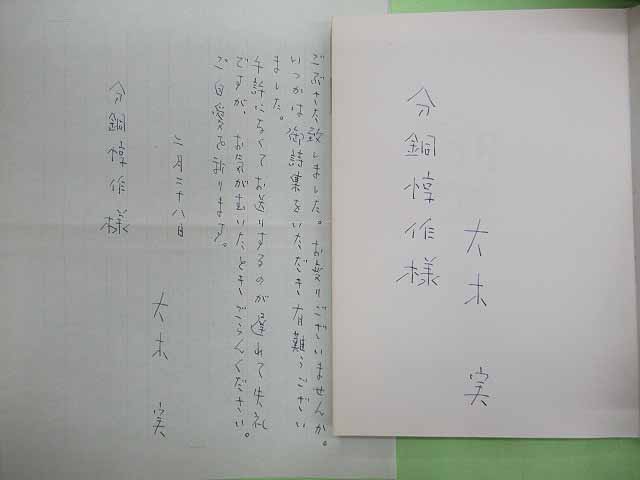 分銅惇作様
大木 実
ごぶさた致しました。お変りございませんか。
いつかは御詩集をいただき有難うござい
ました。
手許になくてお送りするのが遅れて失礼
ですが、お気が向いたときごらんください。
ご自愛を祈ります。
二月二十八日
大木 実
分銅惇作様